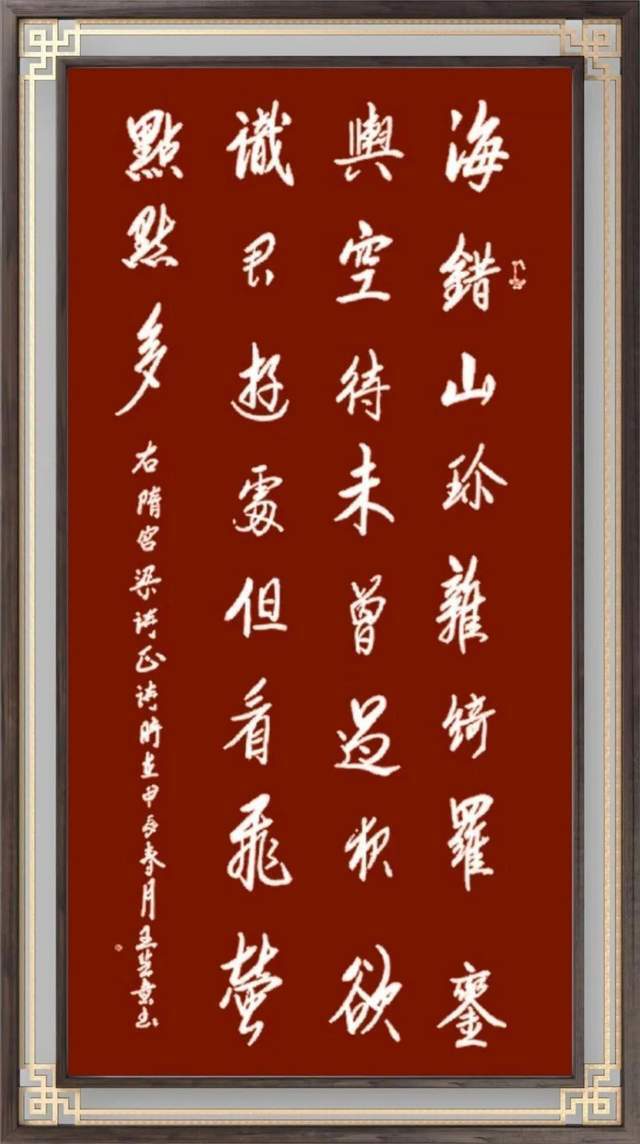 海錯山珍雜綺羅鑾
輿空待未曾過欲
識君遊處但看飛螢
點點多
右隋宮梁詩正詩時在甲辰春月王書